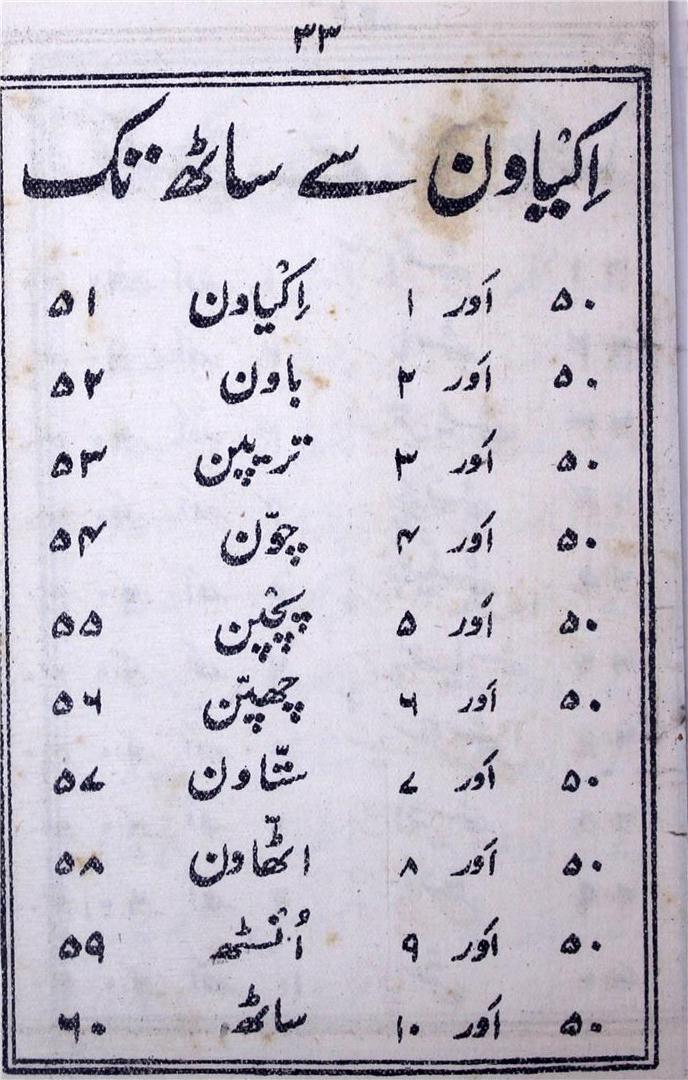 ۳۳
اِکیاون سے ساٹھ تک
۵۰ اَور ۱ اِکیاون ۵۱
۵۰ اَور ۲ باون ۵۲
۵۰ اَور ۳ ترپین ۵۳
۵۰ اَور ۴ چوّن ۵۴
۵۰ اَور ۵ پچپن ۵۵
۵۰ اَور ۶ چھپّن ۵۶
۵۰ اَور ۷ ستّاون ۵۷
۵۰ اَور ۸ اٹھّاون ۵۸
۵۰ اَور ۹ اُنسٹھ ۵۹
۵۰ اَور ۱۰ ساٹھ ۶۰